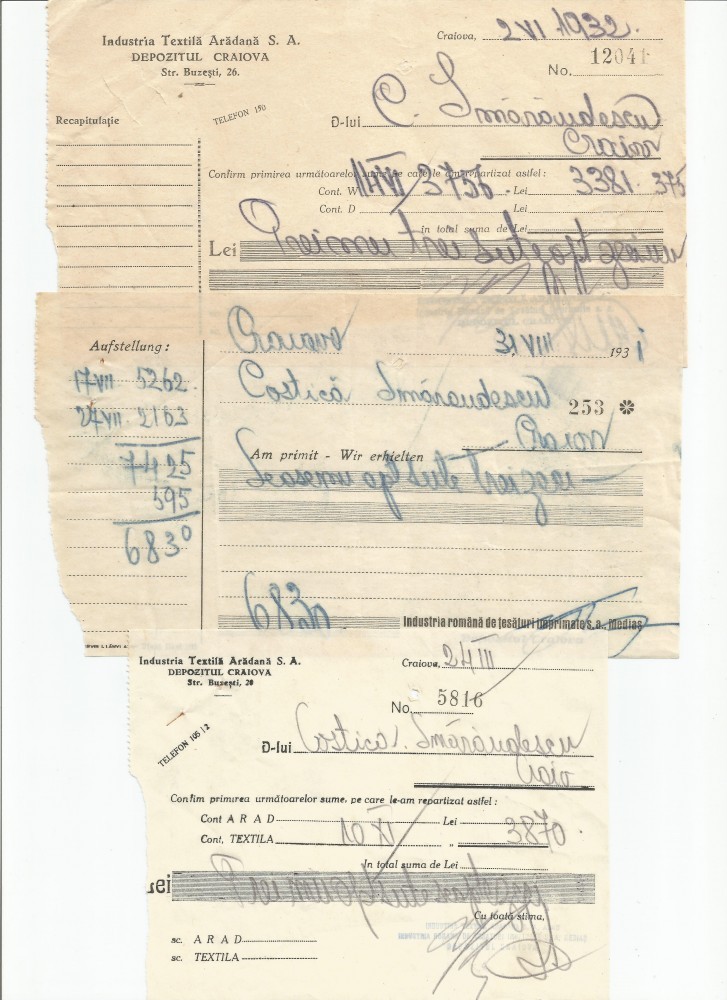 Industria Textilă Arădană S. A.
DEPOZITUL CRAIOVA
Str. Buzești, 26.
Craiova, 2 VI 1932.
No. 12041
TELEFON 150
Recapitulație
D-lui C. Smărăndescu
Craiova
Confirm primirea următoarelor sume pe care le am repartizat astfel:
Cont. W 3756 - Lei 3381. 375
Cont. D Lei
în total suma de Lei
Lei trei sute
Aufstellung:
Craiova 31 VIII 1931
17 VII 5262.
24 VII 2163
7425
595
6830
Costică Smărăndescu
253
Craiova
Am primit - Wir erhielten
Șasemii opt sute treizeci
6830
Industria română de țesături imprimate s. a., Mediaș
Industria Textilă Arădană S. A.
DEPOZITUL CRAIOVA
Str. Buzești, 20
Craiova, 24 III
No. 5816
TELEFON 105 | 2
D-lui Costică Smărăndescu
Confim primirea următoarelor sume, pe care le-am repartizat astfel:
Cont ARAD Lei
Cont, TEXTILA 10 XI „ 3870.
In total suma de Lei
Lei
Cu toată stima,
sc. ARAD
sc. TEXTILA